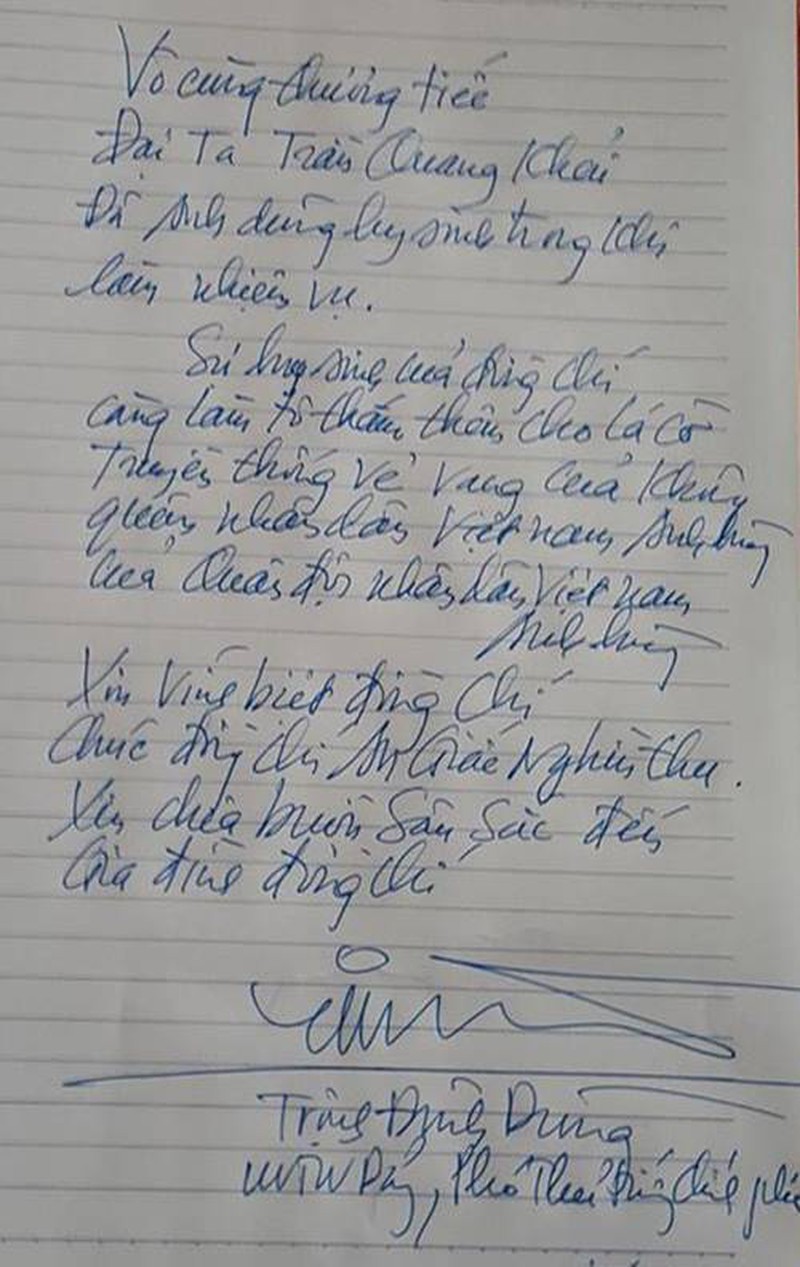 Vô cùng thương tiếc
Đại Tá Trần Quang Khải
Đã Anh dũng hy sinh trong khi
làm nhiệm vụ.
Sự hy sinh của đồng chí
càng làm tô thắm thêm cho lá cờ
Truyền thống vẻ vang của Không
quân nhân dân Việt nam Anh hùng
của Quân đội nhân dân Việt nam
Anh hùng
Xin Vĩnh biệt đồng chí
Chúc đồng chí An Giấc Nghìn thu.
Xin chia buồn Sâu Sắc đến
Gia đình đồng chí
Trịnh Đình Dũng
UVTW Đảng, Phó Thủ tướng chính phủ